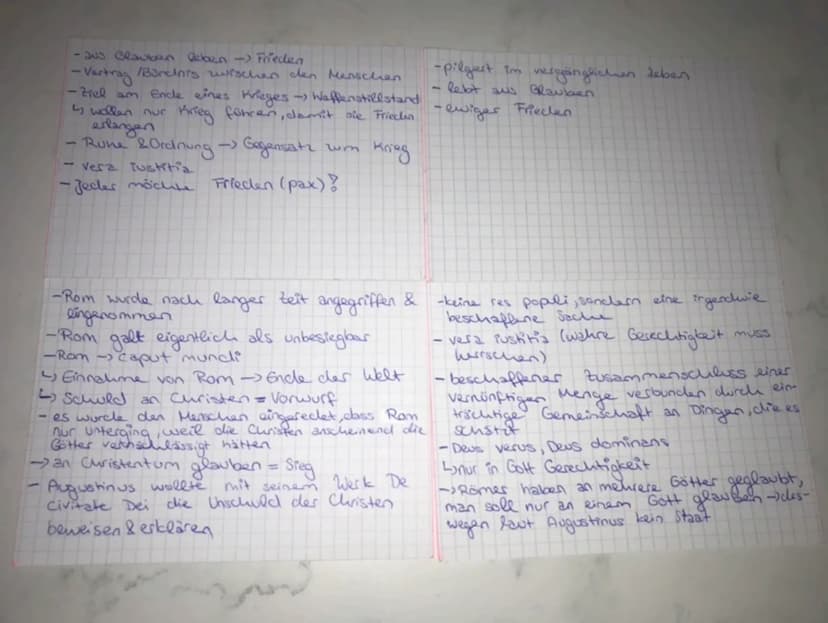 - aus Glauben leben → Frieden
- Vertrag/Bündnis zwischen den Menschen
- Ziel am Ende eines Krieges → Waffenstillstand
↳ wollen nur Krieg führen, damit sie Frieden
erlangen
- Ruhe & Ordnung → Gegensatz zum Krieg
- vera iustitia
- Jeder möchte Frieden (pax)!
- pilgert im vergänglichen Leben
- lebt aus Glauben
- ewiger Frieden
- Rom wurde nach langer Zeit angegriffen &
eingenommen
- Rom galt eigentlich als unbesiegbar
- Rom → caput mundi
↳ Einnahme von Rom → Ende der Welt
↳ Schuld an Christen = Vorwurf
- es wurde den Menschen eingeredet, dass Rom
nur unterging, weil die Christen anscheinend die
Götter vernachlässigt hätten
→ an Christentum glauben = Sieg
- Augustinus wollte mit seinem Werk De
Civitate Dei die Unschuld der Christen
beweisen & erklären
- keine res populi, sondern eine irgendwie
beschaffene Sache
- vera iustitia (wahre Gerechtigkeit muss
herrschen)
- beschaffener Zusammenschluss einer
vernünftigen Menge verbunden durch ein-
trächtige Gemeinschaft an Dingen, die es
schätzt
- Deus verus, Deus dominans
↳ nur in Gott Gerechtigkeit
→ Römer haben an mehrere Götter geglaubt,
man soll nur an einem Gott glauben → des-
wegen laut Augustinus kein Staat